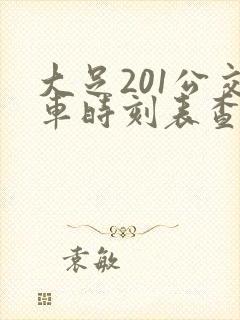 大足201公交
車時刻表查
袁敏